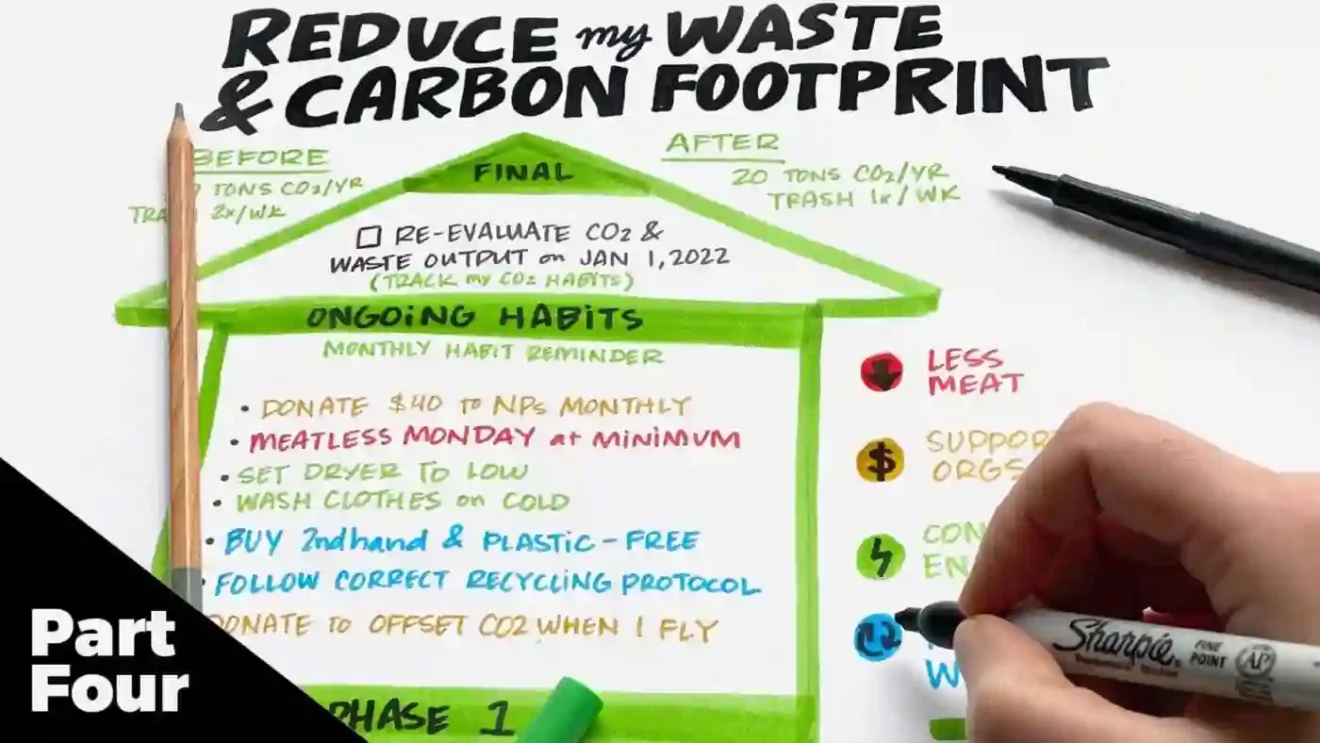 REDUCE my WASTE
& CARBON FOOTPRINT
BEFORE
TONS CO2/YR
2x/WK
AFTER
20 TONS CO2/YR
TRASH 1x/WK
FINAL
RE-EVALUATE CO2 &
WASTE OUTPUT on JAN 1, 2022
(TRACK my CO2 HABITS)
ONGOING HABITS
MONTHLY HABIT REMINDER
• DONATE $40 to NPs MONTHLY
• MEATLESS MONDAY at MINIMUM
• SET DRYER TO LOW
• WASH CLOTHES on COLD
• BUY 2ndhand & PLASTIC-FREE
• FOLLOW CORRECT RECYCLING PROTOCOL
DONATE to OFFSET CO2 WHEN I FLY
PHASE 1
LESS
MEAT
$
ORGS
Sharpie
FINE
POINT
AP
Part
Four